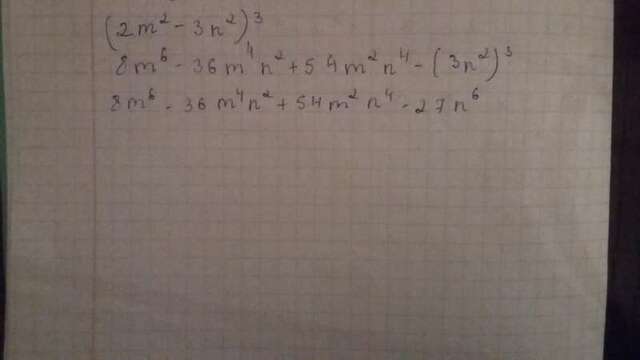 (2m² - 3n²)³
8m⁶ - 36m⁴n² + 54m²n⁴ - (3n²)³
8m⁶ - 36m⁴n² + 54m²n⁴ - 27n⁶